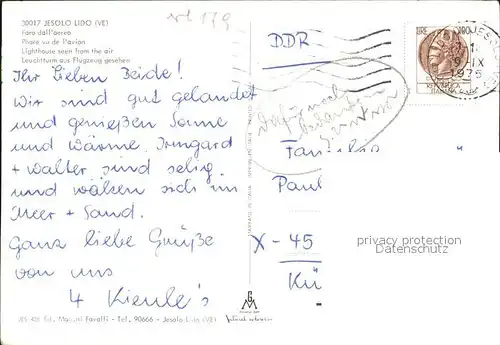 30017 JESOLO LIDO (VE)
Faro dall'aereo
Phare vu de l'avion
Lighthouse seen from the air
Leuchtturm aus Flugzeug gesehen
Ihr lieben Beide!
Wir sind gut gelandet
und genießen Sonne
und Wärme. Irmgard
+ Walter sind selig
und wälzen sich im
Meer + Sand.
Ganz liebe Grüße
von uns
4 Kienle's
Ed. Magami Favaffi - Tel. 90666 - Jesolo Lido (VE)
DDR
LIRE
ITALIANA
JESOLO
IX
1975
Günther
Fam
Paul
X-45
Kü
privacy protection
Disclaimer